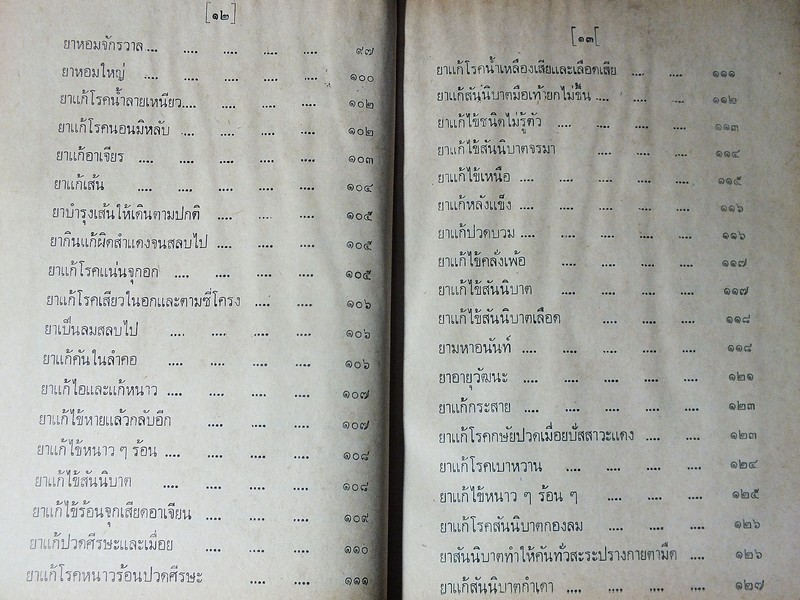 [๑๒]
ยาหอมจักรวาล ... .... .... .... .... ๙๗
ยาหอมใหญ่ .... .... .... .... ๑๐๐
ยาแก้โรคน้ำลายเหนียว.... .... .... .... ๑๐๒
ยาแก้โรคนอนมิหลับ .... .... .... .... ๑๐๒
ยาแก้อาเจียร .... .... .... .... .... ๑๐๓
ยาแก้เส้น .... .... .... .... ๑๐๔
ยาบำรุงเส้นให้เดินตามปกติ .... .... .... ๑๐๕
ยากินแก้ผิดสำแดงจนสลบไป .... .... .... ๑๐๕
ยาแก้โรคแน่นจุกอก .... .... .... .... ๑๐๕
ยาแก้โรคเสียวในอกและตามซี่โครง .... .... ๑๐๖
ยาเป็นลมสลบไป .... .... .... .... ๑๐๖
ยาแก้คันในลำคอ .... .... .... .... ๑๐๖
ยาแก้ไอและแก้หนาว .... .... .... .... ๑๐๗
ยาแก้ไข้หายแล้วกลับอีก .... .... .... ๑๐๗
ยาแก้ไข้หนาว ๆ ร้อน .... .... .... .... ๑๐๘
ยาแก้ไข้สันนิบาต .... .... .... .... ๑๐๘
ยาแก้ไข้ร้อนจุกเสียดอาเจียน .... .... .... ๑๐๙
ยาแก้ปวดศีรษะและเมื่อย .... .... .... ๑๑๐
ยาแก้โรคหนาวร้อนปวดศีรษะ .... .... ๑๑๑
[๑๓[
ยาแก้โรคน้ำเหลืองเสียและเลือดเสีย .... .... ๑๑๑
ยาแก้สันนิบาตมือเท้ายกไม่ขึ้น .... .... .... ๑๑๒
ยาแก้ไข้ชนิดไม่รู้ตัว .... .... .... .... ๑๑๓
ยาแก้ไข้สันนิบาตจรมา .... .... .... ๑๑๔
ยาแก้ไข้เหนือ .... .... .... .... .... ๑๑๕
ยาแก้หลังแข็ง .... .... .... .... .... ๑๑๖
ยาแก้ปวดบวม .... .... .... .... .... ๑๑๖
ยาแก้ไข้คลั่งเพ้อ .... .... .... .... ๑๑๗
ยาแก้ไข้สันนิบาต .... .... .... .... ๑๑๗
ยาแก้ไข้สันนิบาตเลือด .... .... .... ๑๑๘
ยามหาอนันท์ .... .... .... .... .... ๑๑๘
ยาอายุวัฒนะ .... .... .... .... .... ๑๒๑
ยาแก้กระสาย .... .... .... .... .... ๑๒๓
ยาแก้โรคกษัยปวดเมื่อยปัสสาวะแดง .... .... ๑๒๓
ยาแก้โรคเบาหวาน .... .... .... .... ๑๒๔
ยาแก้ไข้หนาว ๆ ร้อน ๆ .... .... .... ๑๒๕
ยาแก้โรคสันนิบาตกองลม .... .... .... ๑๒๖
ยาสันนิบาตทำให้คันทั่วสะระปรางกายตามืด .... ๑๒๖
ยาแก้สันนิบาตกำเดา .... .... .... .... ๑๒๗